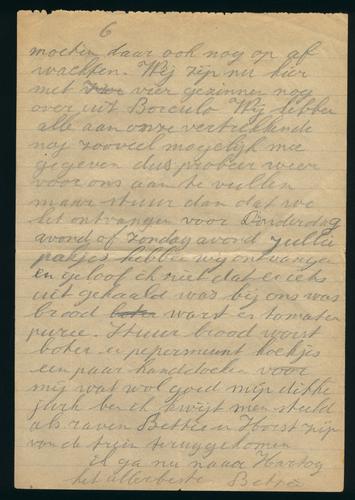 6
moeten daar ook nog op af
wachten. Wij zijn nu hier
met vier gezinnen nog
over uit Borculo Wij hebben
alle aan onze vertrekkende
nog zooveel mogelijk mee
gegeven dus probeer weer
voor ons aan te vullen
maar stuur dan dat we
het ontvangen voor Donderdag
avond of zondag avond jullie
pakjes hebben wij ontvangen
en geloof ik niet dat er iets
uit gehaald was bij ons was
brood worst en tomaten
puree. Stuur brood worst
boter en pepermunt koekjes
een paar handdoeken voor
mij wat wol goed mijn dikke
jurk ben ik kwijt men steeld
als raven Bettie en Horst zijn
van de trein teruggekomen
Ik ga nu naar Hartog
het allerbeste Betsie